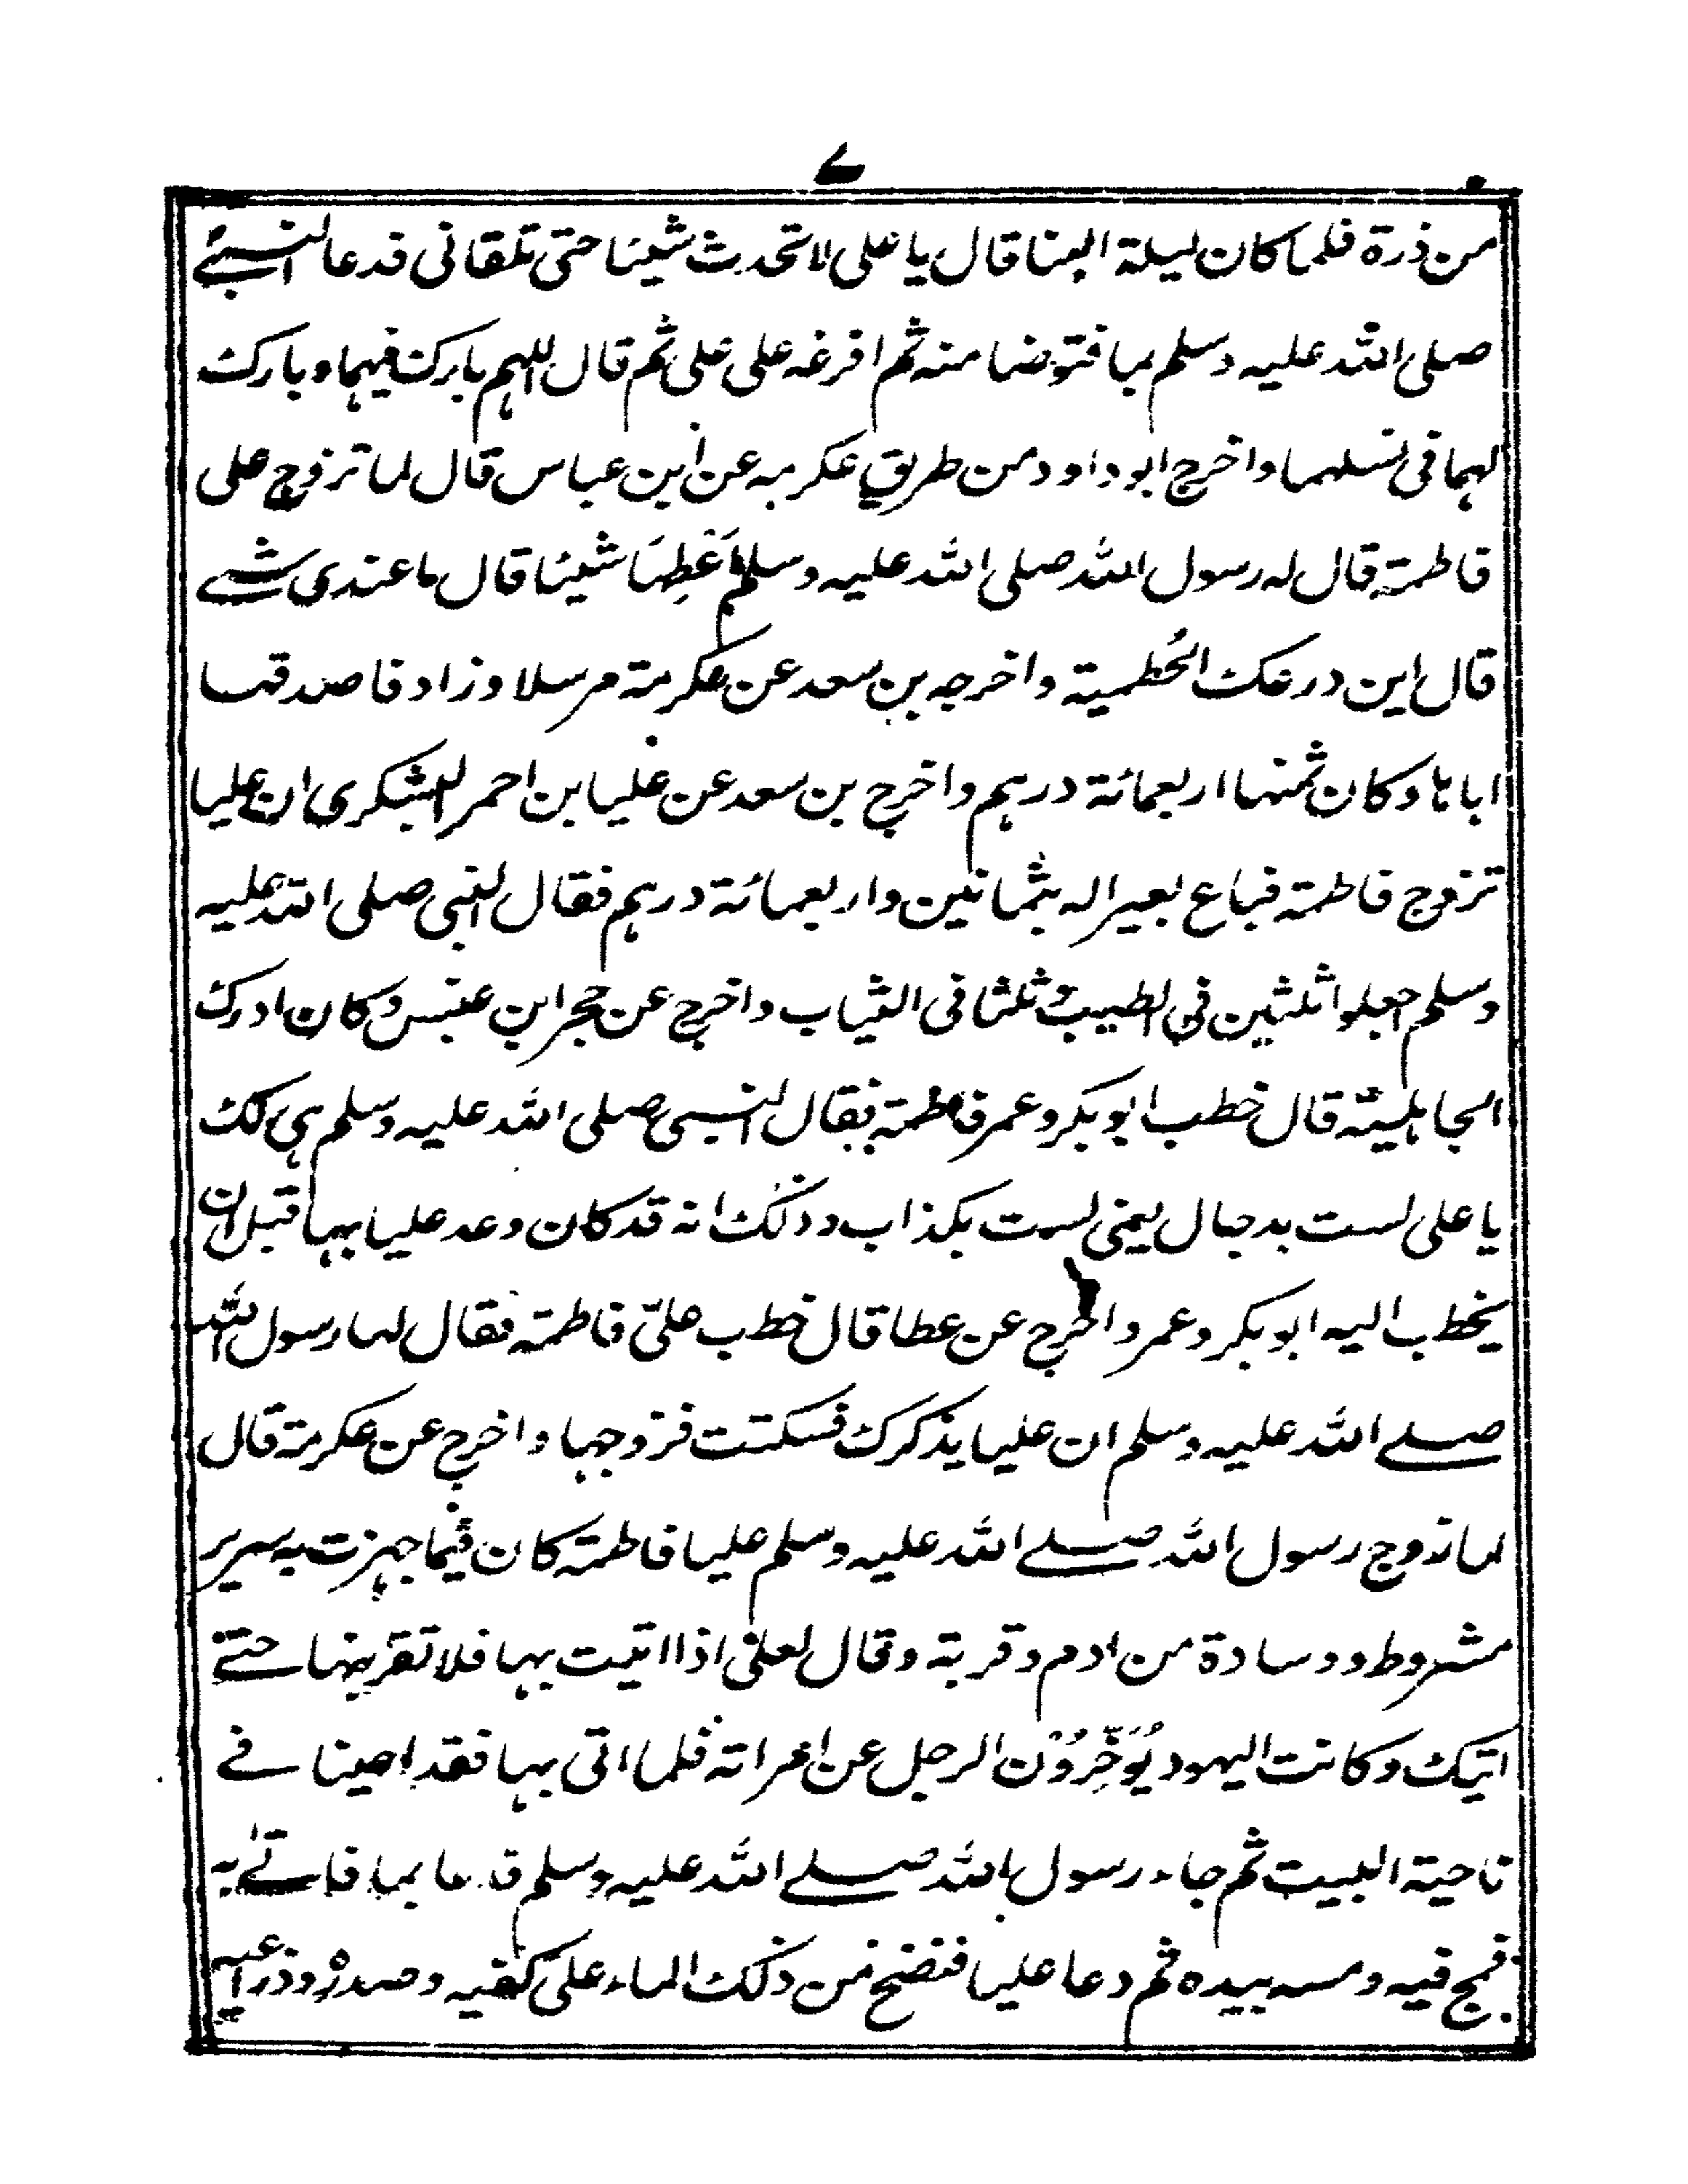 ٧
من ذرة فلما كان ليلة البنا قال يا على لا تحدث شيئا حتى تلقانى فدعا النبي
صلى الله عليه وسلم بما فتوضا منه ثم افرغه على على ثم قال اللهم بارك فيهما و بارك
لهما فى نسلهما واخرج ابو داود من طريق عكرمه عن ابن عباس قال لما تزوج على
فاطمة قال له رسول الله صلى الله عليه وسلم اَعْطِهَا شيئا قال ما عندى شے
قال اين درعك الحُطمية واخرجه بن سعد عن عكرمة مرسلا و زاد فاصدقها
اباها وكان ثمنها اربعمائة درهم واخرج بن سعد عن عليا بن احمر اليشكرى ان عليا
تزوج فاطمة فباع بعيرا له بثمانين واربعمائة درهم فقال النبى صلى الله عليه
وسلم اجعلوا ثلثين فى الطيب و ثلثا فى الثياب واخرج عن حجر ابن عنبس وكان ادرك
الجاهلية قال خطب ابو بكر وعمر فاطمة فقال النبى صلى الله عليه وسلم هى لك
يا على لست بدجال يعنى لست بكذاب وذلك انه قد كان وعد عليا بها قبل ان
يخطب اليه ابو بكر وعمر واخرج عن عطا قال خطب علىّ فاطمة فقال لها رسول الله
صلے الله عليه وسلم ان عليا يذكرك فسكتت فزوجها واخرج عن عكرمة قال
لما زوج رسول الله صلے الله عليه وسلم عليا فاطمة كان فيما جهزت به سرير
مشروط ووسادة من ادم وقربة وقال لعلى اذا اتيت بها فلا تقربنها حتے
اتيك وكانت اليهود يُوَخِّرُوْن الرجل عن امراته فلما اتى بها فقعدا حينا فے
ناحية البيت ثم جاء رسول الله صلے الله عليه وسلم فدعا بما فاتے به
فمج فيه ومسه بيده ثم دعا عليا فنضح من ذلك الماء على كتفيه وصدره وذراعيه